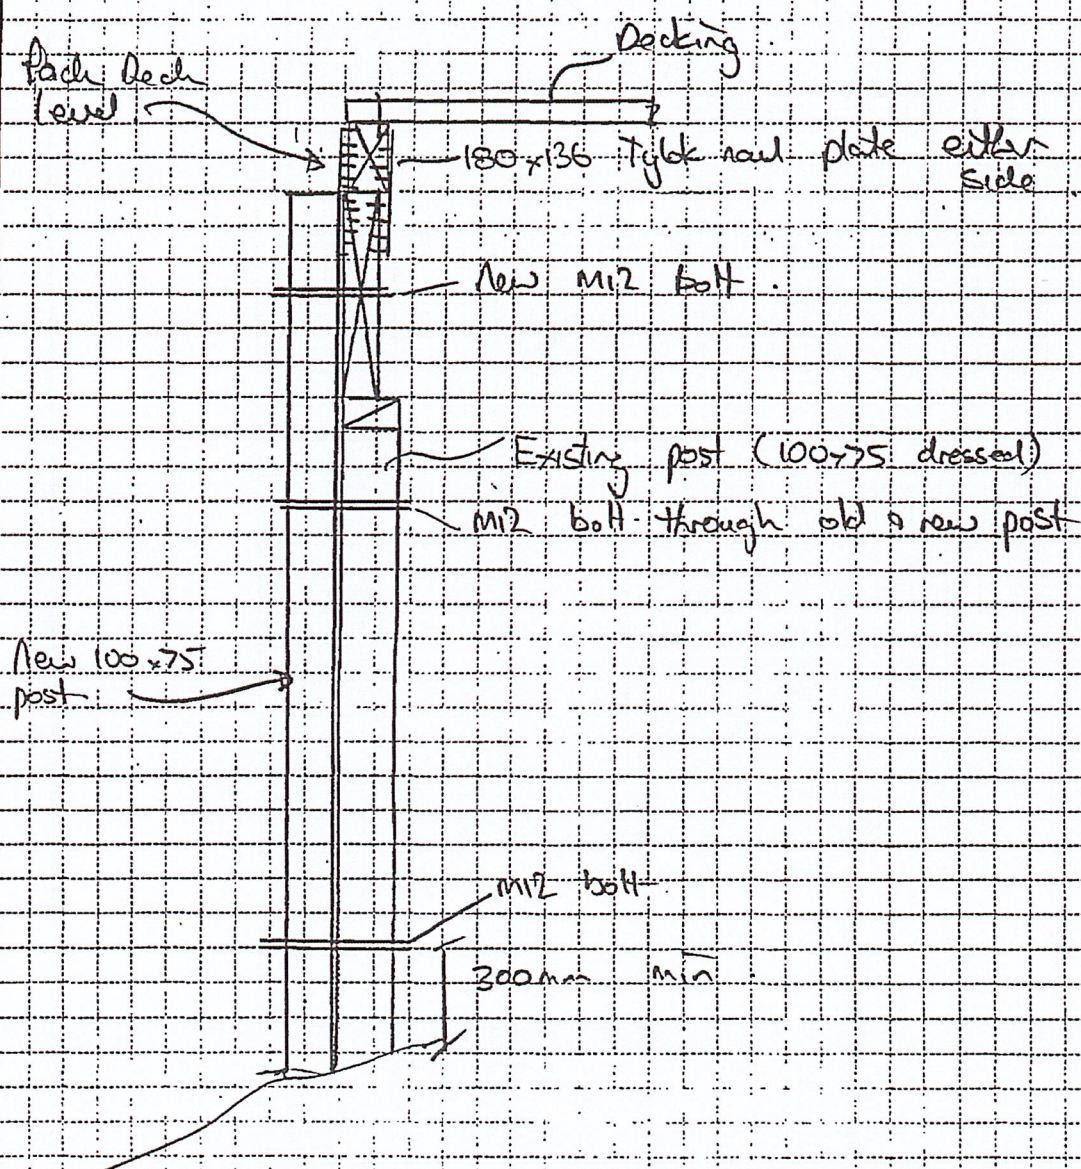 Decking
Pack Deck
level
180x136 Tylok nail plate either
side
New M12 bolt.
Existing post (100x75 dressed)
M12 bolt through old & new post
New 100x75
post
M12 bolt
300mm min